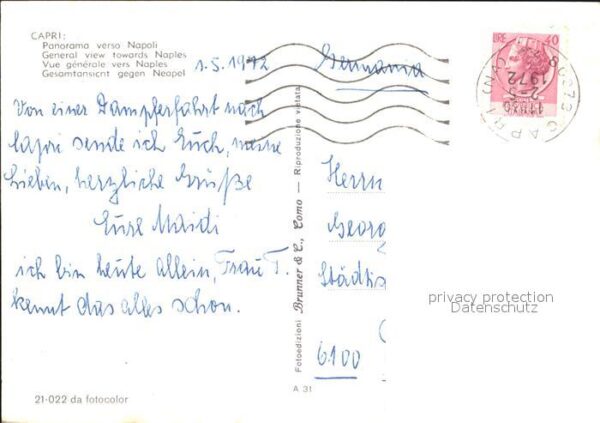 CAPRI:
Panorama verso Napoli
General view towards Naples
Vue générale vers Naples
Gesamtansicht gegen Neapel
1.5.1972
Von einer Dampferfahrt nach
Capri sende ich Euch, meine
Lieben, herzliche Grüße
Eure Maidi
ich bin heute allein, Frau T.
kennt das alles schon.
21-022 da fotocolor
Fotoedizioni Brunner & C., Como — Riproduzione vietata
A 31
Germania
LIRE 40
80073 CAPRI (NA)
2-5
1972
Herrn
Georg
Städtis
6100
privacy protection
Datenschutz